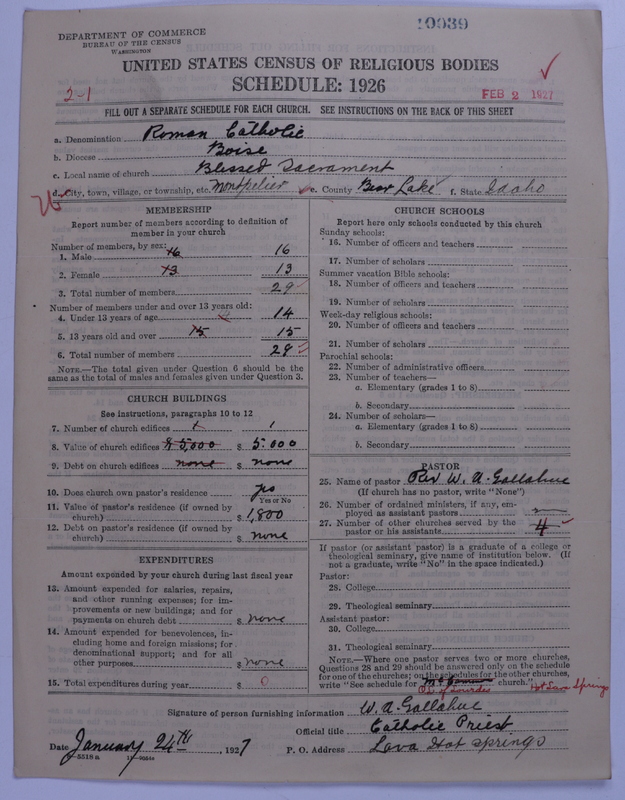 10039
DEPARTMENT OF COMMERCE
BUREAU OF THE CENSUS
WASHINGTON
UNITED STATES CENSUS OF RELIGIOUS BODIES
SCHEDULE: 1926
2-1
FEB 2 1927
FILL OUT A SEPARATE SCHEDULE FOR EACH CHURCH. SEE INSTRUCTIONS ON THE BACK OF THIS SHEET
a. Denomination Roman Catholic
b. Diocese Boise
c. Local name of church Blessed Sacrament
d. City, town, village, or township, etc. Montpelier e. County Bear Lake f. State Idaho
MEMBERSHIP
Report number of members according to definition of
member in your church
Number of members, by sex:
1. Male 16 16
2. Female 13 13
3. Total number of members 29
Number of members under and over 13 years old:
4. Under 13 years of age 14
5. 13 years old and over 15 15
6. Total number of members 29
NOTE.—The total given under Question 6 should be the
same as the total of males and females given under Question 3.
CHURCH BUILDINGS
See instructions, paragraphs 10 to 12
7. Number of church edifices 1 1
8. Value of church edifices $5,000 $ 5.000
9. Debt on church edifices none $ none
10. Does church own pastor's residence yes
Yes or No
11. Value of pastor's residence (if owned by
church) $ 1,800
12. Debt on pastor's residence (if owned by
church) $ none
EXPENDITURES
Amount expended by your church during last fiscal year
13. Amount expended for salaries, repairs,
and other running expenses; for im-
provements or new buildings; and for
payments on church debt $ none
14. Amount expended for benevolences, in-
cluding home and foreign missions; for
denominational support; and for all
other purposes $ none
15. Total expenditures during year $ 0
CHURCH SCHOOLS
Report here only schools conducted by this church
Sunday schools:
16. Number of officers and teachers
17. Number of scholars
Summer vacation Bible schools:
18. Number of officers and teachers
19. Number of scholars
Week-day religious schools:
20. Number of officers and teachers
21. Number of scholars
Parochial schools:
22. Number of administrative officers
23. Number of teachers—
a. Elementary (grades 1 to 8)
b. Secondary
24. Number of scholars—
a. Elementary (grades 1 to 8)
b. Secondary
PASTOR
25. Name of pastor Rev W. A. Gallahue
(If church has no pastor, write "None")
26. Number of ordained ministers, if any, em-
ployed as assistant pastors
27. Number of other churches served by the
pastor or his assistants 4
If pastor (or assistant pastor) is a graduate of a college or
theological seminary, give name of institution below. (If
not a graduate, write "No" in the space indicated.)
Pastor:
28. College
29. Theological seminary
Assistant pastor:
30. College
31. Theological seminary
NOTE.—Where one pastor serves two or more churches,
Questions 28 and 29 should be answered only on the schedule
for one of the churches; on the schedules for the other churches,
write "See schedule for church."
of Lourdes Hot Springs
Signature of person furnishing information W. A. Gallahue
Official title Catholic Priest
Date January 24th, 1927 P. O. Address Lava Hot Springs